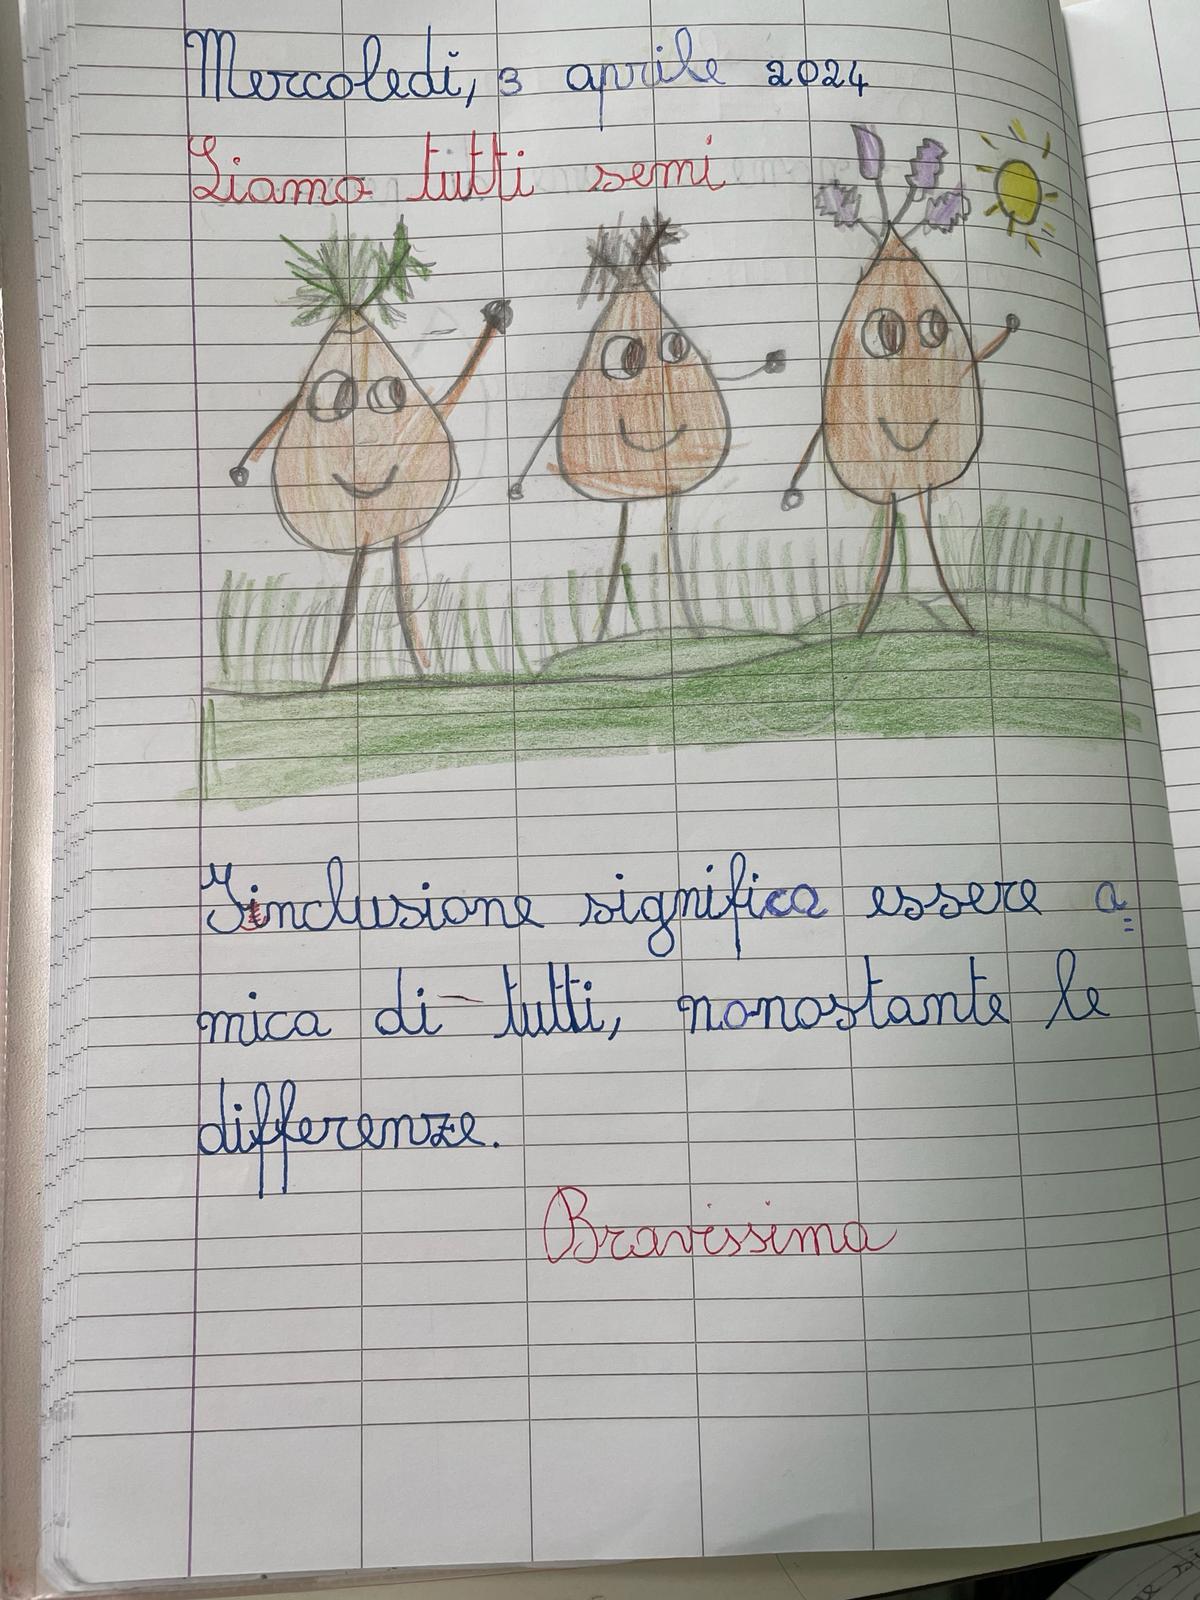 Mercoledì, 3 aprile 2024
Siamo tutti semi
L'inclusione significa essere a=
mica di tutti, nonostante le
differenze.
Bravissima